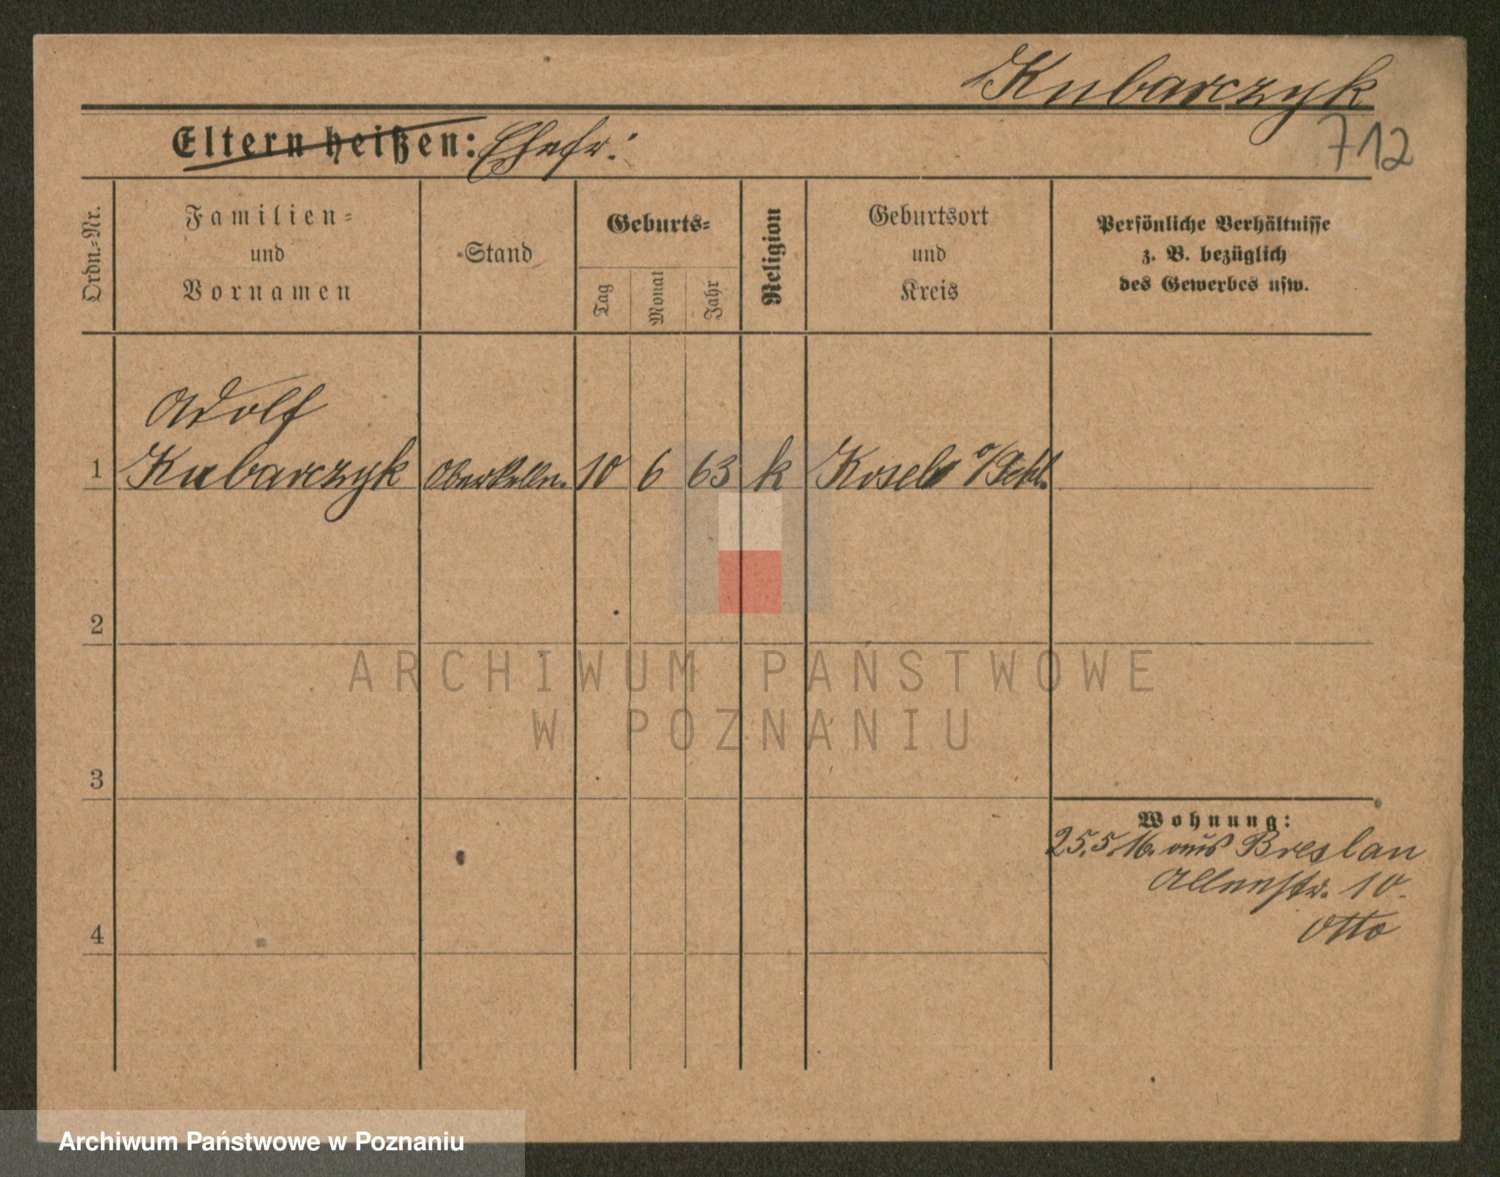 Kubarczyk
712
Eltern heißen: Ehefr:
Ordn.-Nr.
Familien-
und
Vornamen
Stand
Geburts-
Tag
Monat
Jahr
Religion
Geburtsort
und
Kreis
Persönliche Verhältnisse
z. B. bezüglich
des Gewerbes usw.
Adolf
1 Kubarczyk Oberkelln. 10 6 63 k Kosel o/Schl.
2
ARCHIWUM PAŃSTWOWE
W POZNANIU
3
Wohnung:
25.5.16. aus Breslau
10.
Otto
4
Archiwum Państwowe w Poznaniu